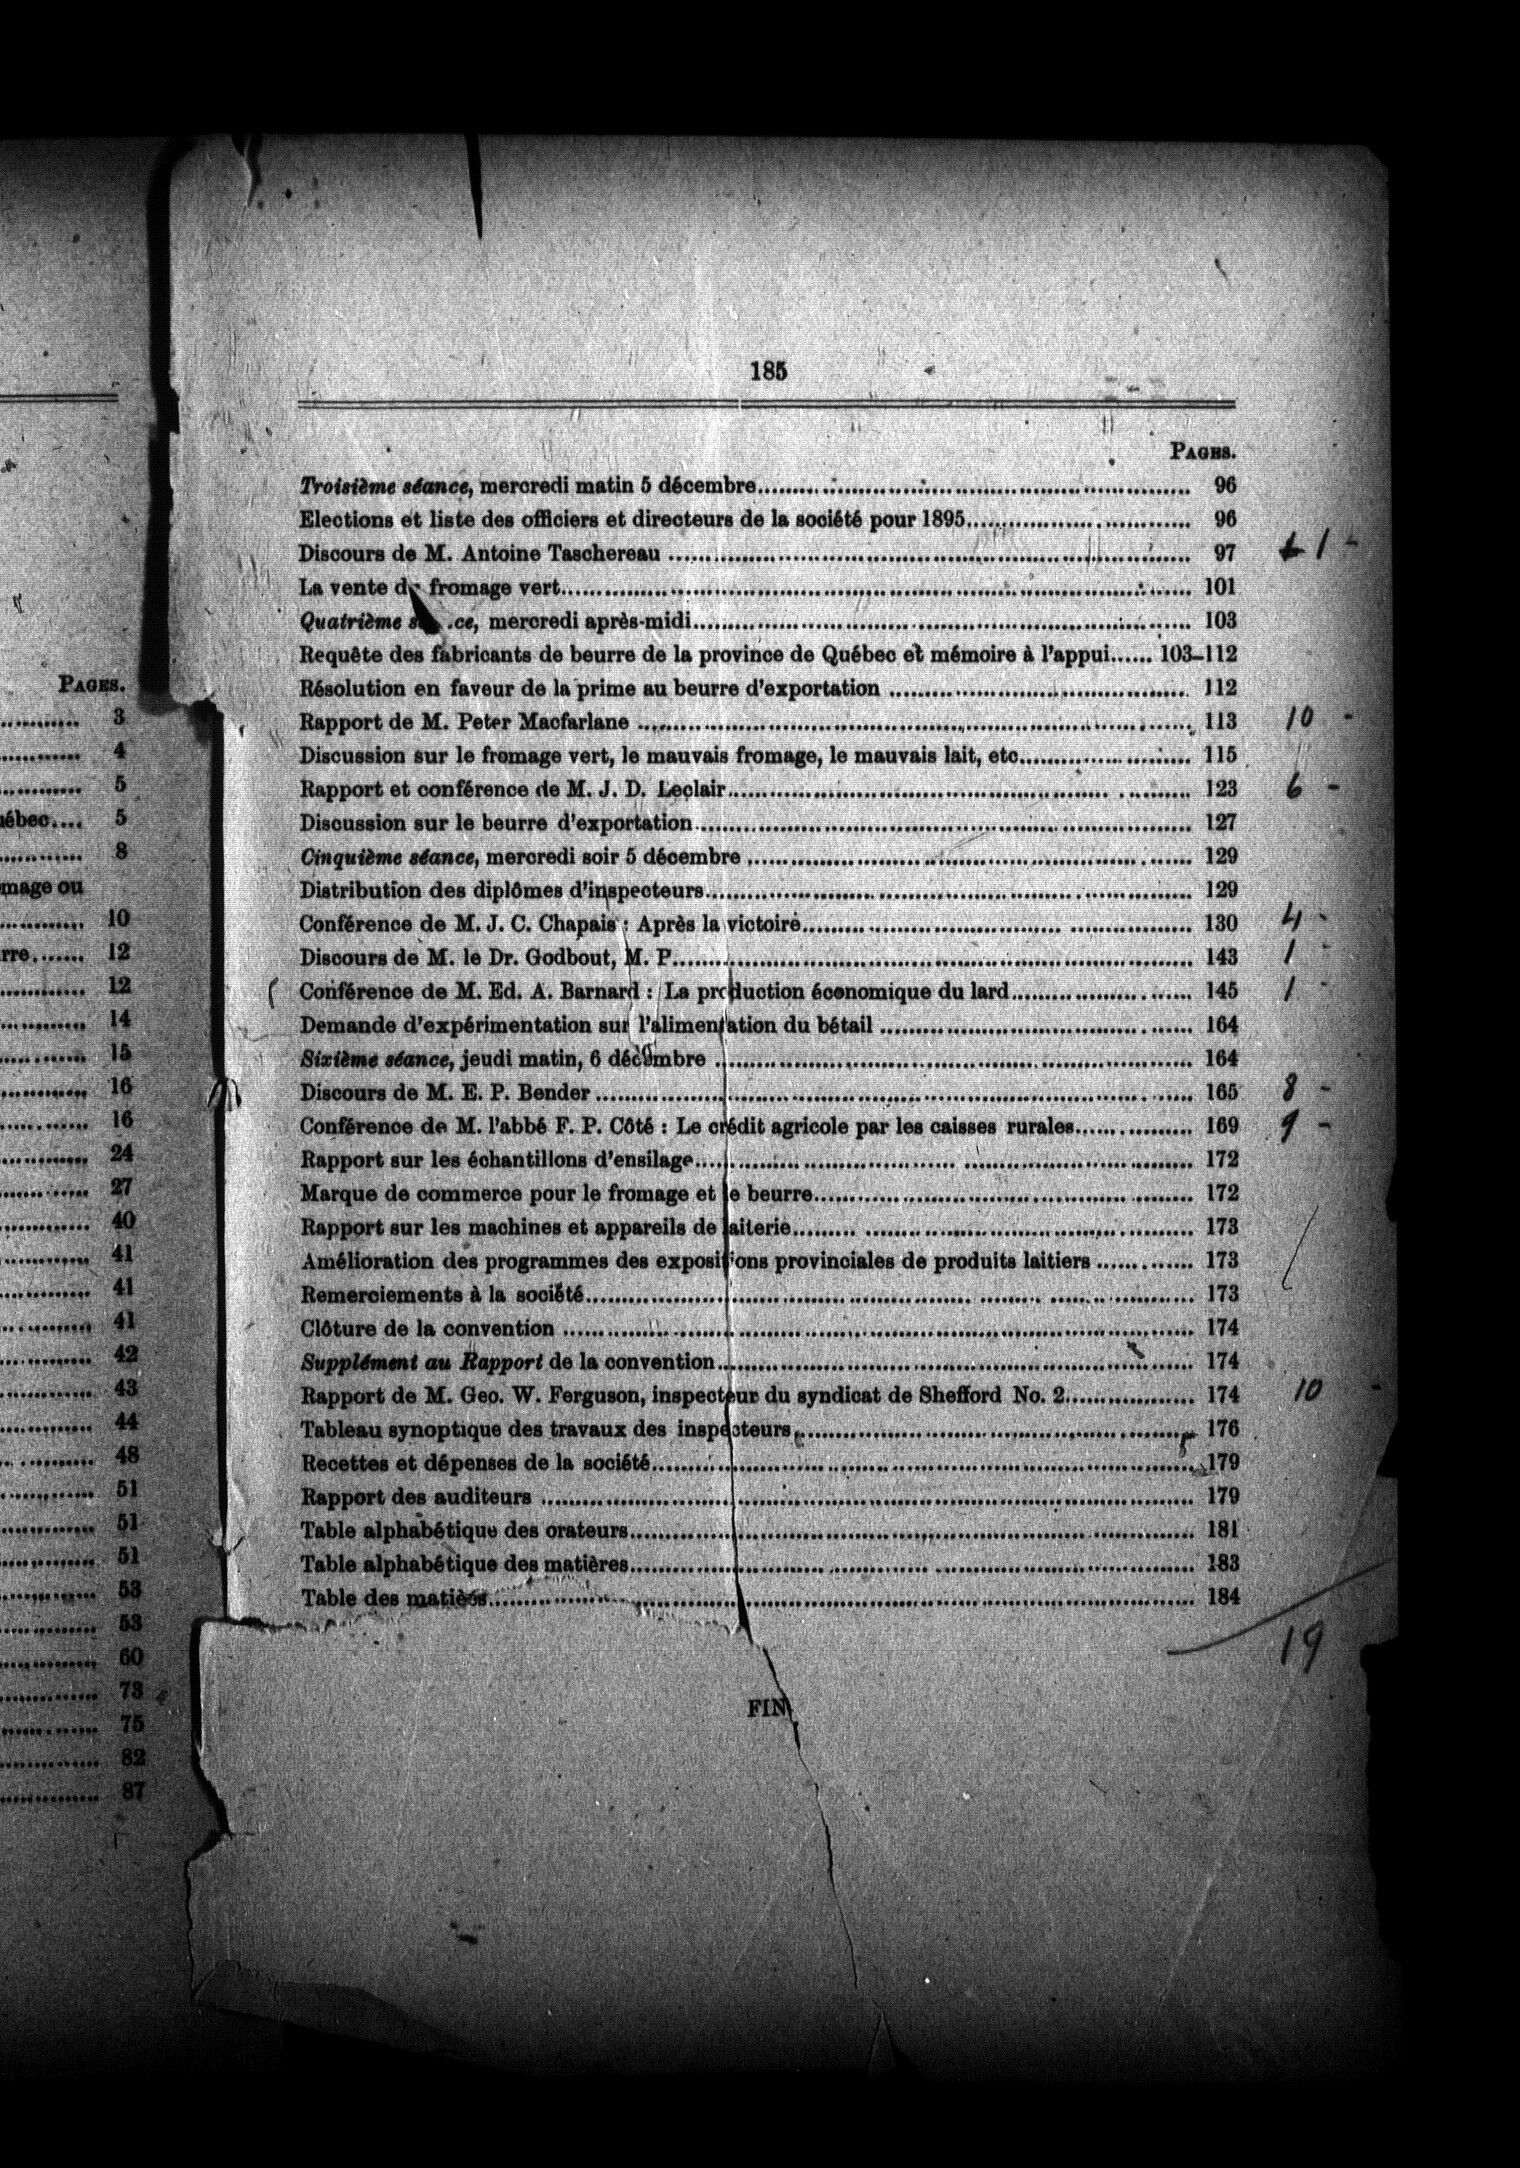 PAGES.
3
4
5
5
8
mage ou
10
rre....... 12
12
14
15
16
16
24
27
40
41
41
41
42
43
44
48
51
51
51
53
53
60
73
75
82
87
185
PAGES.
Troisième séance, mercredi matin 5 décembre 96
Elections et liste des officiers et directeurs de la société pour 1895 96
Discours de M. Antoine Taschereau 97 1 -
La vente fromage vert 101
Quatrième ce, mercredi après-midi 103
Requête des fabricants de beurre de la province de Québec et mémoire à l'appui...... 103–112
Résolution en faveur de la prime au beurre d'exportation 112
Rapport de M. Peter Macfarlane 113 10 -
Discussion sur le fromage vert, le mauvais fromage, le mauvais lait, etc 115
Rapport et conférence de M. J. D. Leclair 123 6 -
Discussion sur le beurre d'exportation 127
Cinquième séance, mercredi soir 5 décembre 129
Distribution des diplômes d'inspecteurs 129
Conférence de M. J. C. Chapais : Après la victoire 130 4 -
Discours de M. le Dr. Godbout, M. P 143 1 -
Conférence de M. Ed. A. Barnard : La production économique du lard 145 1 -
Demande d'expérimentation sur l'alimentation du bétail 164
Sixième séance, jeudi matin, 6 décembre 164
Discours de M. E. P. Bender 165 8 -
Conférence de M. l'abbé F. P. Côté : Le crédit agricole par les caisses rurales 169 9 -
Rapport sur les échantillons d'ensilage 172
Marque de commerce pour le fromage et le beurre 172
Rapport sur les machines et appareils de laiterie 173
Amélioration des programmes des expositions provinciales de produits laitiers 173
Remerciements à la société 173
Clôture de la convention 174
Supplément au Rapport de la convention 174
Rapport de M. Geo. W. Ferguson, inspecteur du syndicat de Shefford No. 2 174 10 -
Tableau synoptique des travaux des inspecteurs 176
Recettes et dépenses de la société 179
Rapport des auditeurs 179
Table alphabétique des orateurs 181
Table alphabétique des matières 183
Table des matièes 184
19
FIN